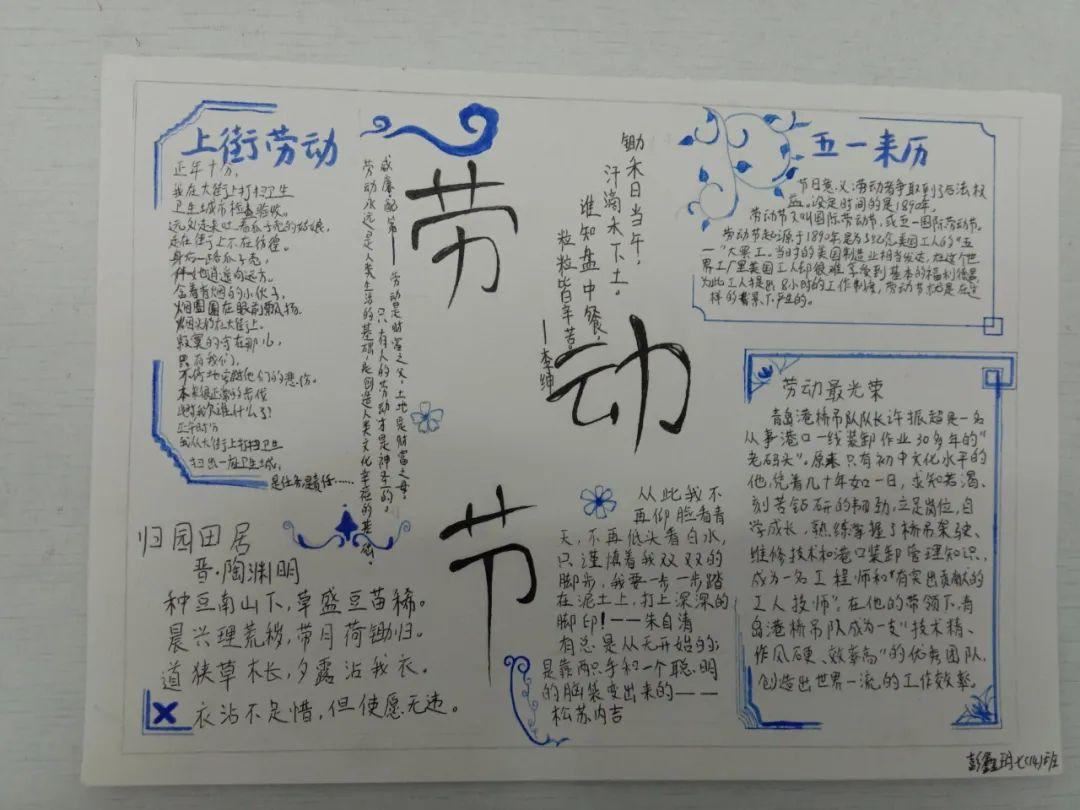 上街劳动
正午十分,
我在大街上打扫卫生
卫生城市检查验收。
远处走来吐着瓜子壳的姑娘,
走在街上不在彷徨。
身后一路瓜子壳,
伴她逍遥向远方。
含着有烟的小伙子,
烟圈圈在眼前飘扬
烟头仍在大街上。
寂寞的守在那儿,
只有我们,
不停地
他们的悲伤。
本来很正常的
什么了?
正午时分
我从大街上打扫卫生
扫出一座卫生城,
是任务是责任……
威廉配第——劳动是财富之父,土地是财富之母。
只有人的劳动才是神圣的。
劳动永远是人类生活的基础是创造人类文化幸福的基础。
劳
动
节
锄禾日当午,
汗滴禾下土。
谁知盘中餐,
粒粒皆辛苦。
——李绅
五一来历
节日意义:劳动者争取到了合法权
益。设定时间的是1890年,
劳动节又叫国际劳动节,或五一国际劳动节。
劳动节起源于1890年是为了纪念美国工人的"五
一"大罢工。当时的美国制造业相当发达,在这个世
界工厂里美国工人却很难享受到基本的福利待遇
为此工人提出8小时的工作制度,劳动节就是在这
样的背景下产生的。
劳动最光荣
青岛港桥吊队队长许振超是一名
从事港口一线装卸作业30多年的"
老码头"。原来只有初中文化水平的
他,凭着几十年如一日,求知若渴、
刻苦钻研的韧劲,立足岗位,自
学成长,熟练掌握了桥吊架驶、
维修技术和港口装卸管理知识,
成为一名工程师和"有突出贡献的
工人技师"。在他的带领下,青
岛港桥吊队成为一支"技术精、
作风硬、效率高"的优秀团队,
创造出世界一流的工作效率。
归园田居
晋·陶渊明
种豆南山下,草盛豆苗稀。
晨兴理荒秽,带月荷锄归。
道狭草木长,夕露沾我衣。
衣沾不足惜,但使愿无违。
从此我不
再仰脸看青
天,不再低头看白水,
只谨慎着我双双的
脚步,我要一步一步踏
在泥土上,打上深深的
脚印!——朱自清
有总是从无开始的;
是靠两只手和一个聪明
的脑袋变出来的——
松苏内吉
七(14)班